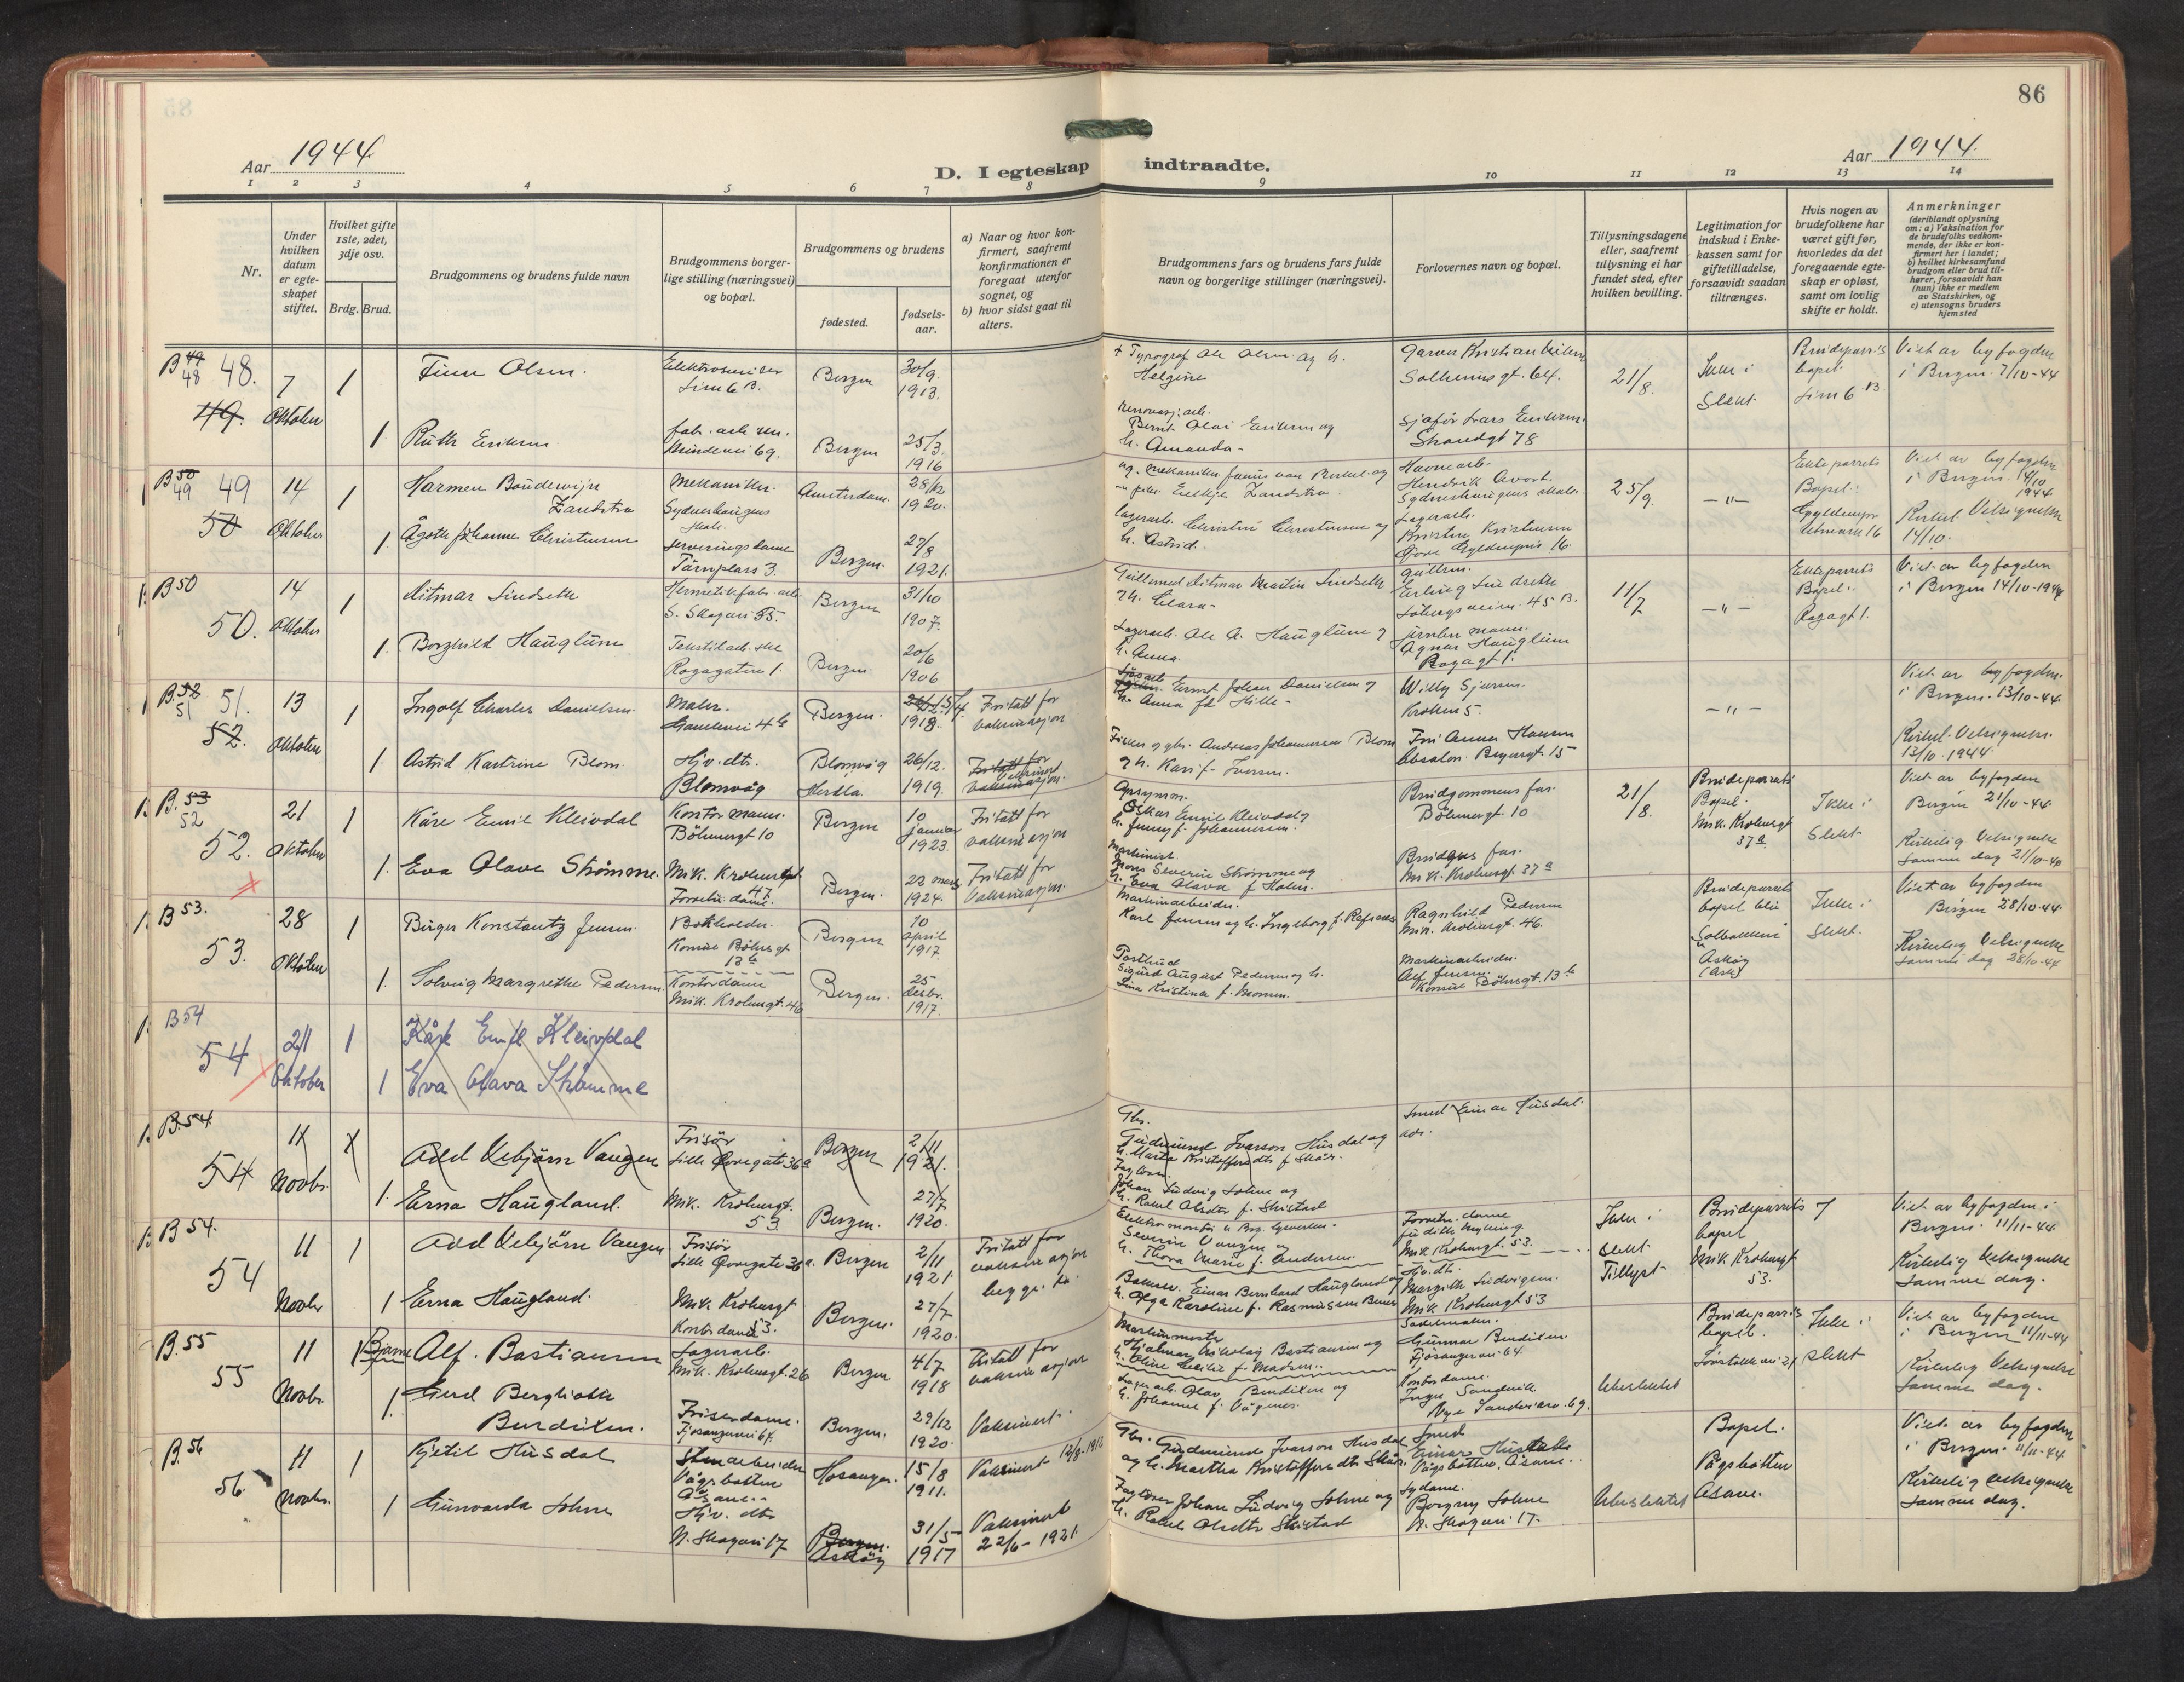 86
Aar 1944
D. I egteskap indtraadte.
Aar 1944.
1 2 3 4 5 6 7 8 9 10 11 12 13 14
Nr.
Under hvilken datum er egteskapet stiftet.
Hvilket gifte 1ste, 2det, 3dje osv.
Brdg. Brud.
Brudgommens og brudens fulde navn
Brudgommens borgerlige stilling (næringsvei) og bopæl.
Brudgommens og brudens
fødested.
fødselsaar.
a) Naar og hvor konfirmert, saafremt konfirmationen er foregaat utenfor sognet, og
b) hvor sidst gaat til alters.
Brudgommens fars og brudens fars fulde navn og borgerlige stillinger (næringsvei).
Forlovernes navn og bopæl.
Tillysningsdagene eller, saafremt tillysning ei har fundet sted, efter hvilken bevilling.
Legitimation for indskud i Enkekassen samt for giftetilladelse, forsaavidt saadan tiltrænges.
Hvis nogen av brudefolkene har været gift før, hvorledes da det foregaaende egteskap er opløst, samt om lovlig skifte er holdt.
Anmerkninger
(deriblandt oplysning om: a) Vaksination for de brudefolks vedkommende, der ikke er konfirmert her i landet;
b) hvilket kirkesamfund brudgom eller brud tilhører, forsaavidt han (hun) ikke er medlem av Statskirken, og
c) utensogns bruders hjemsted
B 49 48 48. 7 1 Finn Olsen. Bergen 30/9. 1913.
49. Oktober
+ Typograf Ole Olsen og h. Helgine
Solheims gt. 64. 21/8. Ikke i Slekt.
Brudeparets bopel
Viet av byfogden i Bergen 7/10-44
1 Ruth Eriksen. Bergen 25/3. 1916
Bernt Olai Eriksen og h. Amanda
Sjafør Lars Eriksen. Strandgt 78
B 50 49 49 14 1 Harmen Boudewijn Zandstra Mekaniker. Sydneshaugens skole. Amsterdam. 28/12 1920.
50 Oktober
Havnearb. Hendrik
Sydneshaugens skole. 25/9. -"-
Ekteparets Bopel:
Viet av byfogden i Bergen. 14/10 1944
Kirkel. Velsignelse 14/10.
1. Ågoth Johanne Christensen Serveringsdame Tårnplass 3. Bergen. 27/8 1921.
Lagerarb. Christen Christensen og h. Astrid.
Lagerarb. Kristen Kristensen
B 50 14 1 Ditmar Lindseth Hermetikfab. arb. S. Skogvei 55. Bergen 31/10 1907.
50. Oktober
Ditmar Martin Lindseth og h. Clara
Erling Lindseth 45 B. 11/7 -"-
Ekteparets Bopel: Rogagt 1.
Viet av byfogden i Bergen 14/10-1944
1. Borghild Hauglum Rogagaten 1. Bergen. 20/6 1906
Lagerarb. Ole A. Hauglum og h. Anna.
Agnar Hauglum Rogagt 1.
B. 52 51 51. 13 1 Ingolf Charles Danielsen. Maler. Bergen. 1918.
52. Oktober
Fritatt for vaksinasjon
Ernst Johan Danielsen og h. Anna fd Hille
Willy Sjursen. Kroken 5. -"-
Viet av byfogden i Bergen. 13/10-44
Kirkel. Velsignelse. 13/10.1944
1. Astrid Kartrine Blom. Hjv. dtr. Blomvåg Blomvåg Herdla. 26/12. 1919.
Fritatt for vaksinasjon. Vaksinert
Fisker og gbr. Andreas Johannesen Blom og h. Kari f. Iversen.
Frk Anna Hansen Absalon Beyersgt. 15
B. 53 52 21 1 Kåre Emil Kleivdal Kontormann. Böhmergt 10 Bergen 10 januar 1923.
52. Oktober
Fritatt for vaksinasjon
Oskar Emil Kleivdal og h. Jenny f. Johannesen.
Brudgomnens far. Böhmergt. 10 21/8.
Brudeparets Bopel. Mik. Krohnsgt 37a
Ikke i Slekt
Viet av byfogden Bergen 21/10-44.
Kirkelig Velsignelse samme dag 21/10-44
1. Eva Olava Strømme. Mik. Krohnsgt 47 Forretn. dame. Bergen. 22 mars 1924.
Fritatt for Vaksinasjon.
Maskinist. Mons Severin Strømme og h. Eva Olava f. Holm.
Brudens far. Mik. Krohnsgt. 37a
B 53. 28 1 Birger Konstantz Jensen Bokholder. Bergen 10 april 1917.
53. Oktober
Maskinarbeider. Karl Jensen og h. Ingeborg f.
Ragnhild Pedersen Mik. Krohnsgt. 46.
Brudeparets bopel blir Solbakken Askøy (Ask)
Ikke i Slekt.
Viet av byfogden Bergen 28/10-44.
Kirkelig Velsignelse samme dag 28/10-44
1. Solveig Margrethe Pedersen. Kontordame Mik. Krohnsgt. 46 Bergen. 25 desbr. 1917.
Postbud Sigurd August Pedersen og h. Lina Kristina f. Monsen.
Maskinarbeider. Alf Jensen.
B 54 21 1 Kåre Emil Kleivdal
54 Oktober 1 Eva Olava Strømme
B. 54. 11 1 Odd Vebjørn Vangen Frisör Lille Øvregate 36a Bergen 2/11 1921.
54 Novbr.
Gbr. Gudmund Ivarson Husdal og h. Marta Kristoffersdtr f. Skår.
Smed Einar Husdal.
1. Erna Haugland. Mik. Krohnsgt. 53. Bergen. 27/7 1920.
Faglærer Johan Ludvig Sohne og h. Rakel Olsdtr f. Skistad
B 54. 11 1 Odd Vebjørn Vangen Frisör Lille Øvregate 36a. Bergen 2/11 1921
54 Novbr
Fritatt for vaksinasjon begge to.
Severin Vangen og h. Thora Marie f. Andersen.
Forretn. dame Judith Myking. Mik Krohnsgt. 53.
Ikke i slekt. Tillyst
Brudeparrets bopel Mik Krohnsgt 53.
Viet av byfogden i Bergen. 11/11-44
Kirkelig velsignelse samme dag.
1 Erna Haugland. Mik. Krohnsgt 53. Kontordame Bergen. 27/7 1920.
Einar Bernhard Haugland og h. Olga Karoline f. Rasmussen
Hjv. dtr. Margith Ludvigsen. Mik. Krohnsgt 53
B. 55 11 1 Bjarne Alf. Bastiansen Lagerarb. Mik. Krohnsgt. 26 Bergen 4/7 1918
55 Novbr.
Fritatt for vaksinasjon
Hjalmar Nikolay Bastiansen og h. Oline Cecilie f. Madsen.
Gunnar Bendixen Fjøsangervei 64.
Brudeparets bopel. Ikke i slekt
Viet av byfogden i Bergen 11/11-44
Kirkelig Velsignelse samme dag.
1. Gerd Berglioth Bendixen. Friserdame. Fjøsangervei 64. Bergen. 29/12 1920. Vaksinert.
Lagerarb. Olav Bendixen og h. Johanne f. Vågenes.
Kontordame. Inga Sandvik Nye Sandviksv. 69.
Ubeslektet
B. 56 11 1 Kjetil Husdal Vågsbotten Åsane. Hosanger. 15/8 1911.
56. Novbr.
Vaksinert 12/8-1912
Gbr. Gudmund Ivarson Husdal og h. Martha Kristoffersdtr Skår.
Smed Einar Husdal Vågsbotten, Åsane.
Bopel. Vågsbotten Åsane.
Viet av byfogden i Bergen. 11/11-44
Kirkelig velsignelse samme dag.
1 Gunvarda Sohne Hjv. dtr N. Skogvei 17 Bergen. Askøy 31/5 1917
Vaksinert 22/6-1921.
Faglærer Johan Ludvig Sohne og h. Rakel Olsdtr Skistad
Sydame. Borgny Sohne N. Skogvei 17.
Ubeslektet